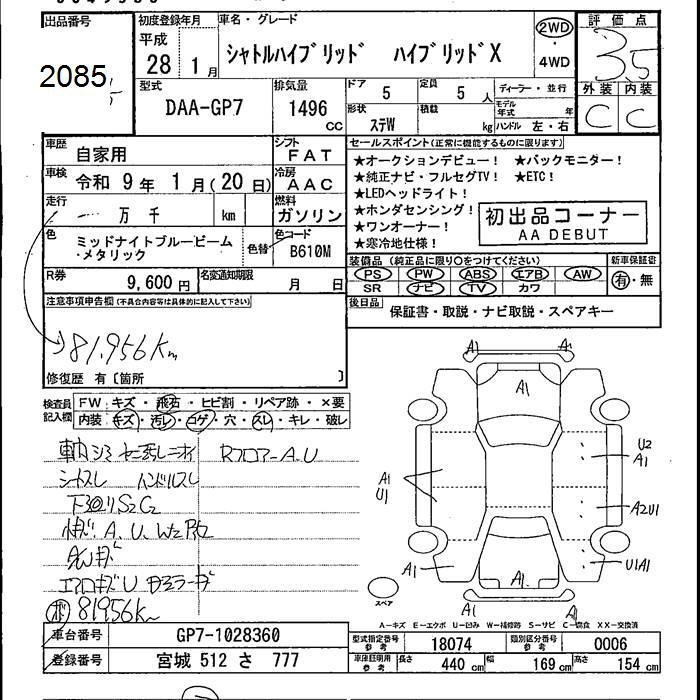 出品番号 初度登録年月 車名・グレード 評価点
平成 28 1月 シャトルハイブリッド ハイブリッドX 2WD 3.5
・4WD
2085 外装 内装
型式 排気量 ドア 定員 ディーラー・並行
DAA-GP7 1496 5 5人 C C
CC 形状 積載 モデル年式 年
ステW kg ハンドル 左・右
車歴 自家用 シフト FAT セールスポイント(正常に機能するものに限ります)
★オークションデビュー! ★バックモニター!
車検 令和 9年 1月(20日) 冷房 AAC ★純正ナビ・フルセグTV! ★ETC!
★LEDヘッドライト!
走行 万 千 km 燃料 ガソリン ★ホンダセンシング! 初出品コーナー
★ワンオーナー! AA DEBUT
★寒冷地仕様!
色 ミッドナイトブルービーム・メタリック 色替 色コード B610M
装備品(純正品に限り○をつけてください) 新車保証書
PS PW ABS エアB AW 有・無
R券 9,600円 名変通知期限 月 日 SR ナビ TV カワ
注意事項申告欄(不具合内容等は具体的に記入して下さい) 後日品 保証書・取説・ナビ取説・スペアキー
81,956Km
修復歴 有〔箇所 〕
検査員記入欄 FW キズ・飛石・ヒビ割・リペア跡・×要
内装 キズ・汚レ・コゲ・穴・スレ・キレ・破レ
RフロアーA.U
シートスレ ハンドルスレ
下回りS2C2
A.U.W2
81956Km
A1 A1 A1
A1
U2
A1
A1
U1
A2U1
A1 A1 U1A1
スペア A1 A1
A-キズ E-エクボ U-凹み W-補修跡 S-サビ C-腐食 XX-交換済
車台番号 GP7-1028360 型式指定番号 参考 18074 類別区分番号 参考 0006
登録番号 宮城 512 さ 777 車庫証明用 参考 長さ 440cm 幅 169cm 高さ 154cm